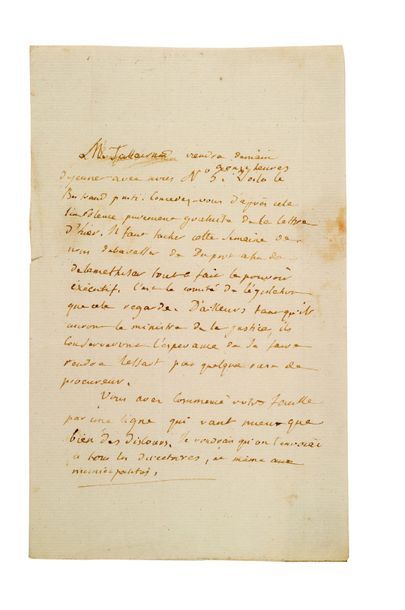 M. Talleyrand viendra demain
déjeuner avec nous N° 5. à onze heures
Voilà le
Bertrand puni. Concevez-vous d'après cela
l'insolence purement gratuite de la lettre
d'hier. Il faut tacher cette semaine de
nous débarasser de Duport afin de
tout à fait le pouvoir
exécutif. C'est le comité de législation
que cela regarde. D'ailleurs tant qu'ils
auront le ministre de la justice, ils
conserveront l'espérance de se faire
rendre par quelque ruse de
procureur.
Vous avez commencé votre feuille
par une ligne qui vaut mieux que
bien des discours. Je voudrais qu'on l'envoiât
à tous les directoires, et même aux
municipalités.